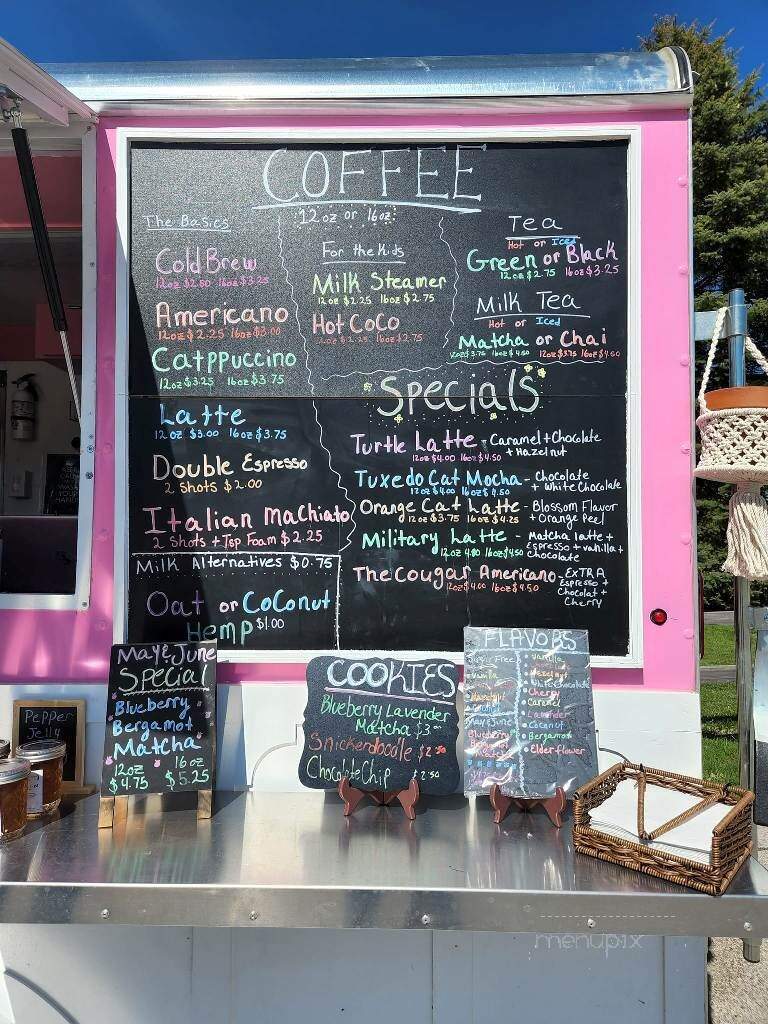 COFFEE
12oz or 16oz
The Basics
Cold Brew
12oz $2.50 16oz $3.25
Americano
12oz $2.25 16oz $3.00
Catppuccino
12oz $3.25 16oz $3.75
Latte
12oz $3.00 16oz $3.75
Double Espresso
2 Shots $2.00
Italian Machiato
2 Shots + Top Foam $2.25
Milk Alternatives $0.75
Oat or Coconut
Hemp $1.00
For the Kids
Milk Steamer
12oz $2.25 16oz $2.75
Hot CoCo
12oz $2.25 16oz $2.75
Tea
Hot or Iced
Green or Black
12oz $2.75 16oz $3.25
Milk Tea
Hot or Iced
Matcha or Chai
12oz $3.75 16oz $4.50 12oz $3.75 16oz $4.50
Specials
Turtle Latte - Caramel + Chocolate
+ Hazelnut
12oz $4.00 16oz $4.50
Tuxedo Cat Mocha - Chocolate
+ White Chocolate
12oz $4.00 16oz $4.50
Orange Cat Latte - Blossom Flavor
+ Orange Peel
12oz $3.75 16oz $4.25
Military Latte - Matcha latte +
Espresso + vanilla +
Chocolate
12oz 4.00 16oz $4.50
The Cougar Americano - ExTRA
Espresso +
Chocolat +
Cherry
12oz $4.00 16oz $4.50
May & June
Special
Blueberry
Bergamot
Matcha
12oz 16oz
$4.75 $5.25
COOKIES
Blueberry Lavender
Matcha $3.00
Snickerdoodle $2.50
Chocolate Chip $2.50
FLAVORS
Sugar Free
Vanilla
Hazelnut
Coconut
May & June
Blueberry
• Vanilla
• Hazelnut
• White Chocolate
• Cherry
• Caramel
• Lavender
• Coconut
• Bergamot
• Elderflower
Pepper
Jelly
menupix